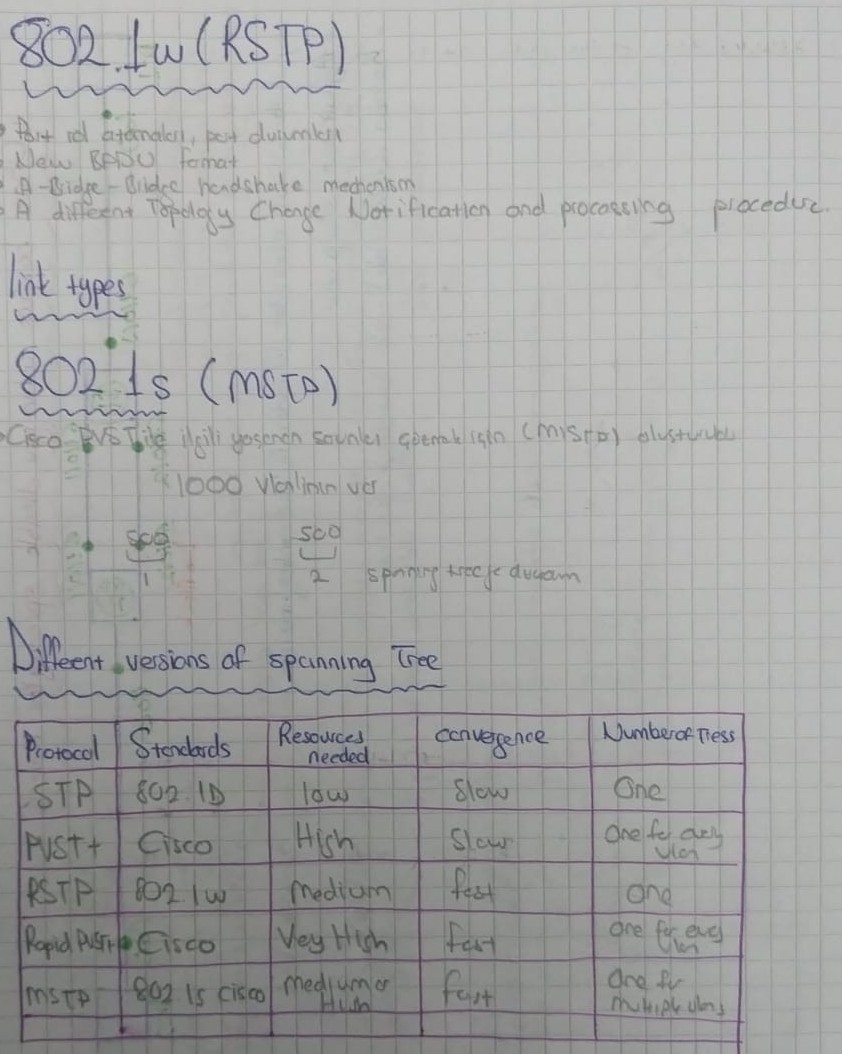 802.1w (RSTP)
Port rol atamaları, port durumları
New BPDU format
A-Bridge-Bridge handshake mechanism
A different Topology Change Notification and processing procedure.
link types
802 1s (MSTP)
Cisco PVST ile ilgili yaşanan sorunları için (MSTP) oluşturuldu
1000 var
500 500
1 2 spanning tree
Different versions of spanning Tree
Protocol Standards Resources needed convergence Number of Tress
STP 802.1D low Slow One
PVST+ Cisco High Slow One for every vlan
RSTP 802 1w medium fast one
Rapid PVST+ Cisco Vey High fast one for every vlan
MSTP 802 1s Cisco medium or High fast One for multiple vlans